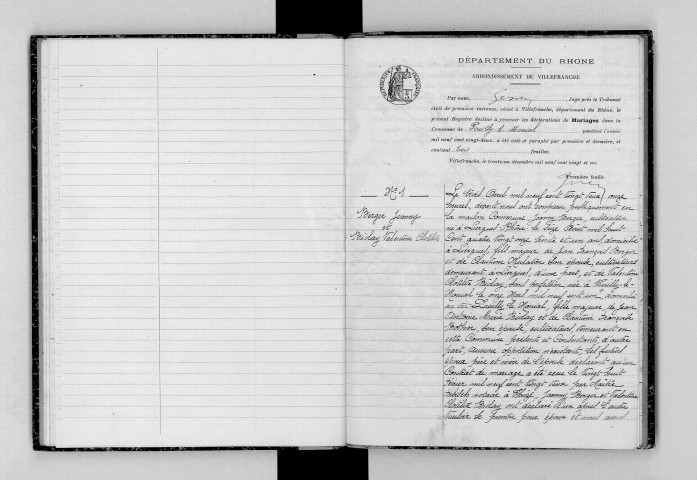 DÉPARTEMENT DU RHONE
ARRONDISSEMENT DE VILLEFRANCHE
Par nous, Juge près le Tribunal
civil de première instance, séant à Villefranche, département du Rhône, le
présent Registre destiné à recevoir les déclarations de Mariages dans la
Commune de Pouilly le Monial pendant l'année
mil neuf cent vingt-deux, a été coté et paraphé par première et dernière, et
contenant feuilles.
Villefranche, le trente-un décembre mil neuf cent vingt et un.
Première feuille
N° 1
Berger Joanny
et
Bidlay Valentine Clotilde
Le Avril mil neuf cent vingt deux, onze
heures, devant nous ont comparu publiquement en
la maison Commune Joanny Berger, cultivateur
né à Liergues Rhône le Août mil huit
Cent quatre vingt onze trente et un ans, domicilié
à Liergues, fils majeur de Jean François Berger
et de Claudine son épouse, cultivateurs
demeurant à Liergues, d'une part, et de Valentine
Clotilde Bidlay, sans profession née à Pouilly-le-
Monial le onze Mai mil neuf cent un, domiciliée
au dit Pouilly le Monial, fille majeure de Jean
Antoine Marie Bidlay et de Claudine Françoise
son épouse, cultivateurs, demeurant en
cette Commune présents et Consentants, d'autre
part, aucune opposition n'existant. Les futurs
époux père et mère de l'épouse déclarent qu'un
Contrat de mariage a été reçu le vingt huit
mil neuf cent vingt deux par Maître
notaire à Theizé, Joanny Berger et Valentine
Clotilde Bidlay ont déclaré l'un après l'autre
vouloir se prendre pour époux et nous avons